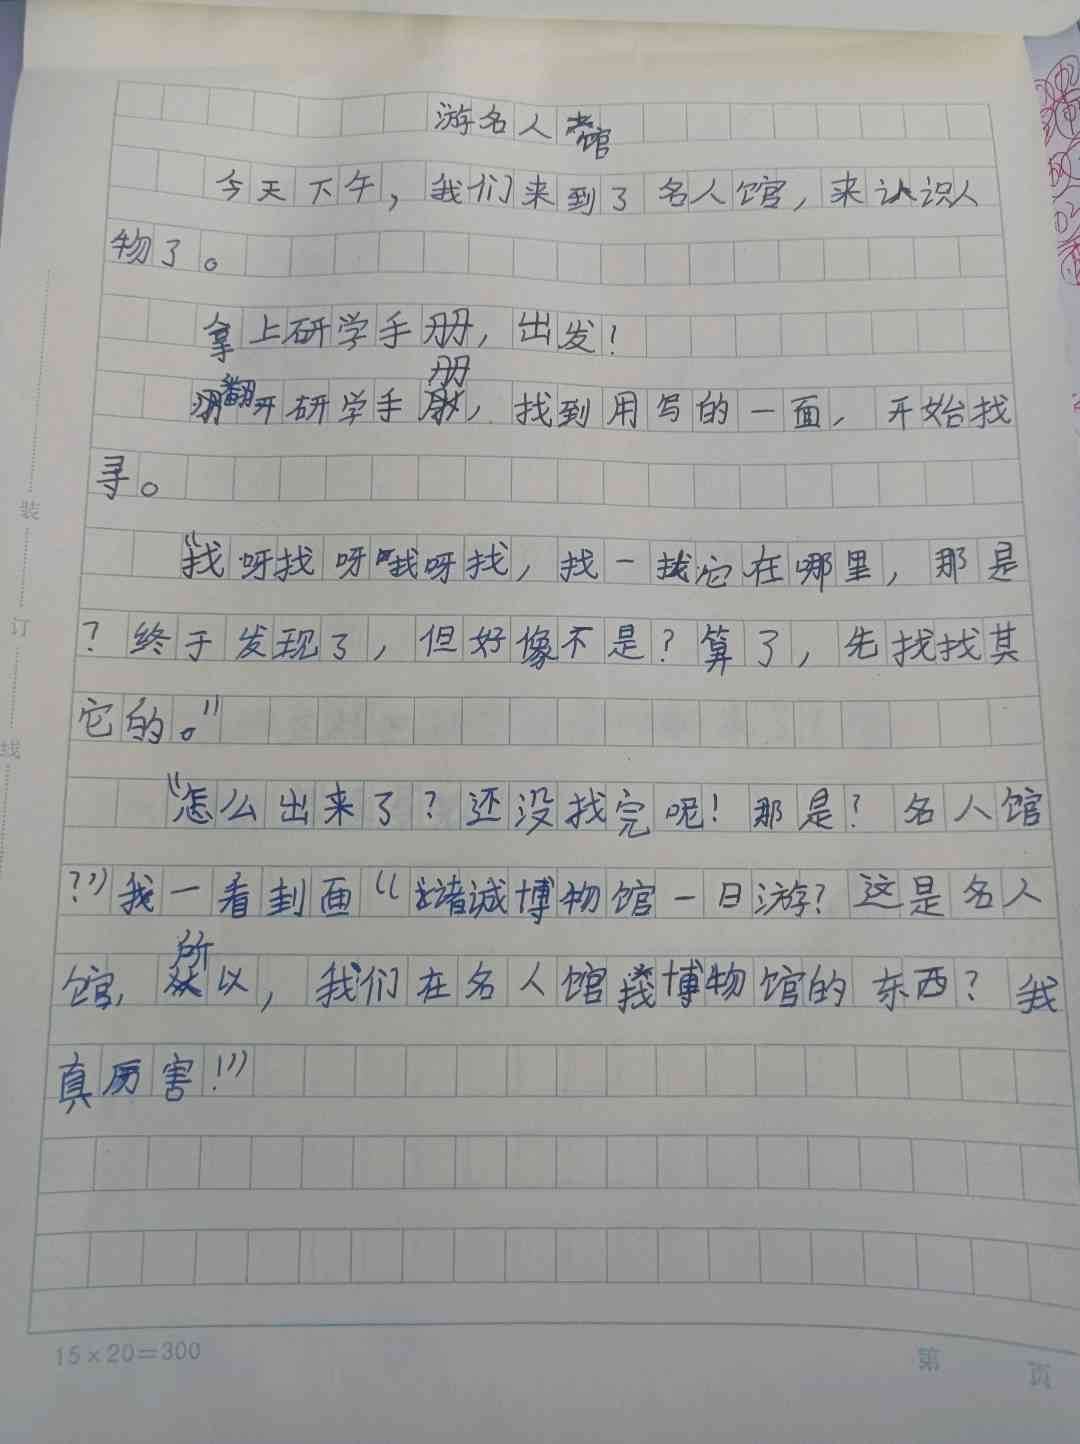 游名人馆
今天下午，我们来到了名人馆，来认识人
物了。
拿上研学手册，出发！
册
翻开研学手，找到用写的一面，开始找
寻。
“找呀找呀找呀找，找一找它在哪里，那是
？终于发现了，但好像不是？算了，先找找其
它的。”
“怎么出来了？还没找完呢！那是？名人馆
？”我一看封面“诸诚博物馆一日游？这是名人
所
馆，以，我们在名人馆找博物馆的东西？我
真厉害！”
15×20=300
第 页
装
订
线